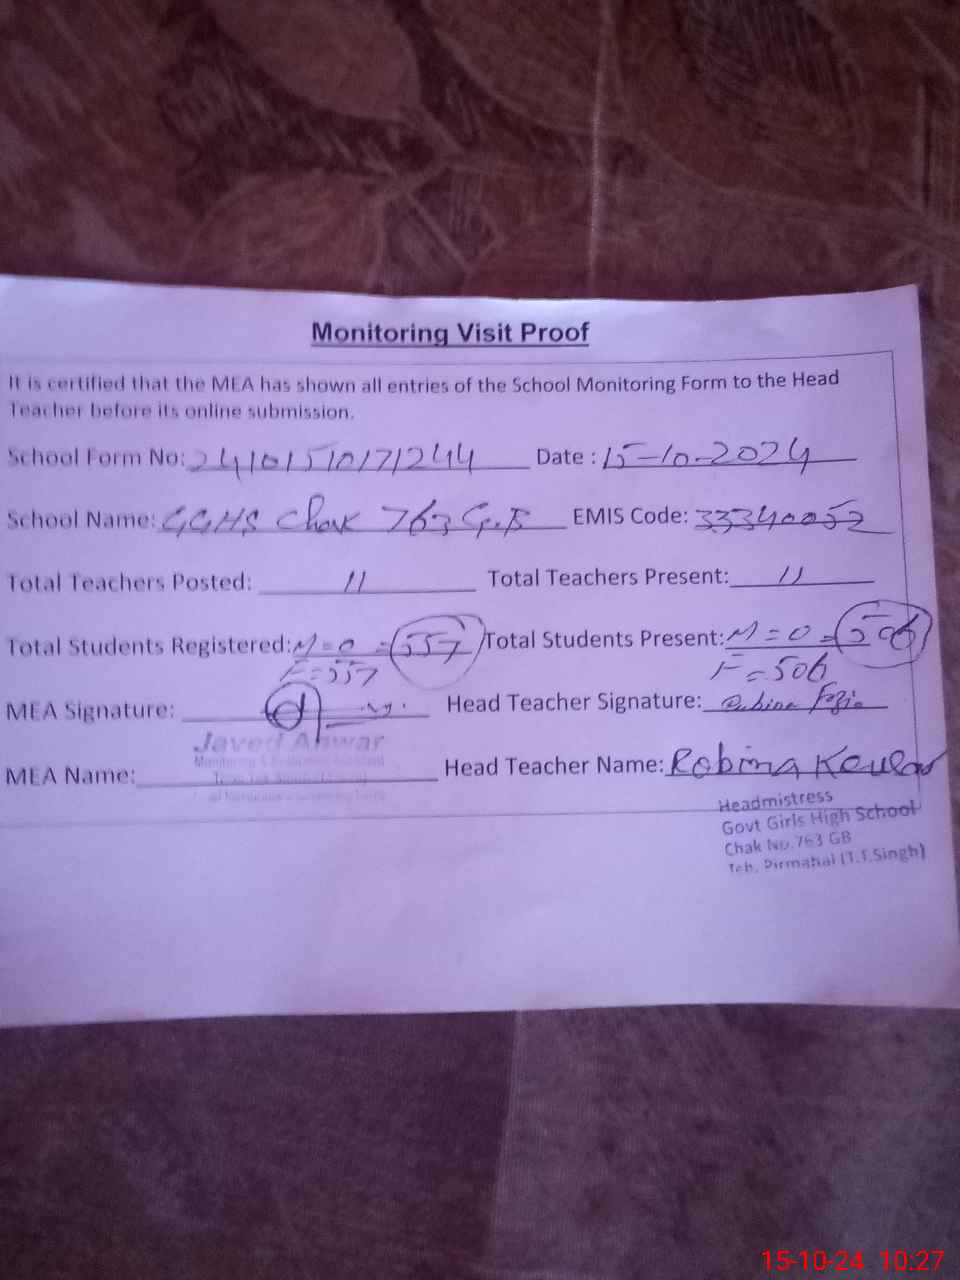 Monitoring Visit Proof
It is certified that the MEA has shown all entries of the School Monitoring Form to the Head
Teacher before its online submission.
School Form No: 24101510171244 Date : 15-10-2024
School Name: GGHS Chak 763 G.B EMIS Code: 33340052
Total Teachers Posted: 11 Total Teachers Present: 11
Total Students Registered: M = 0 = 557 Total Students Present: M = 0 = 506
F = 557 F = 506
MEA Signature: Head Teacher Signature:
Javed Anwar
MEA Name: Head Teacher Name: Robina Kousar
Headmistress
Govt Girls High School
Chak No.763 GB
Teh. Pirmahal (T.T.Singh)
15-10-24 10:27